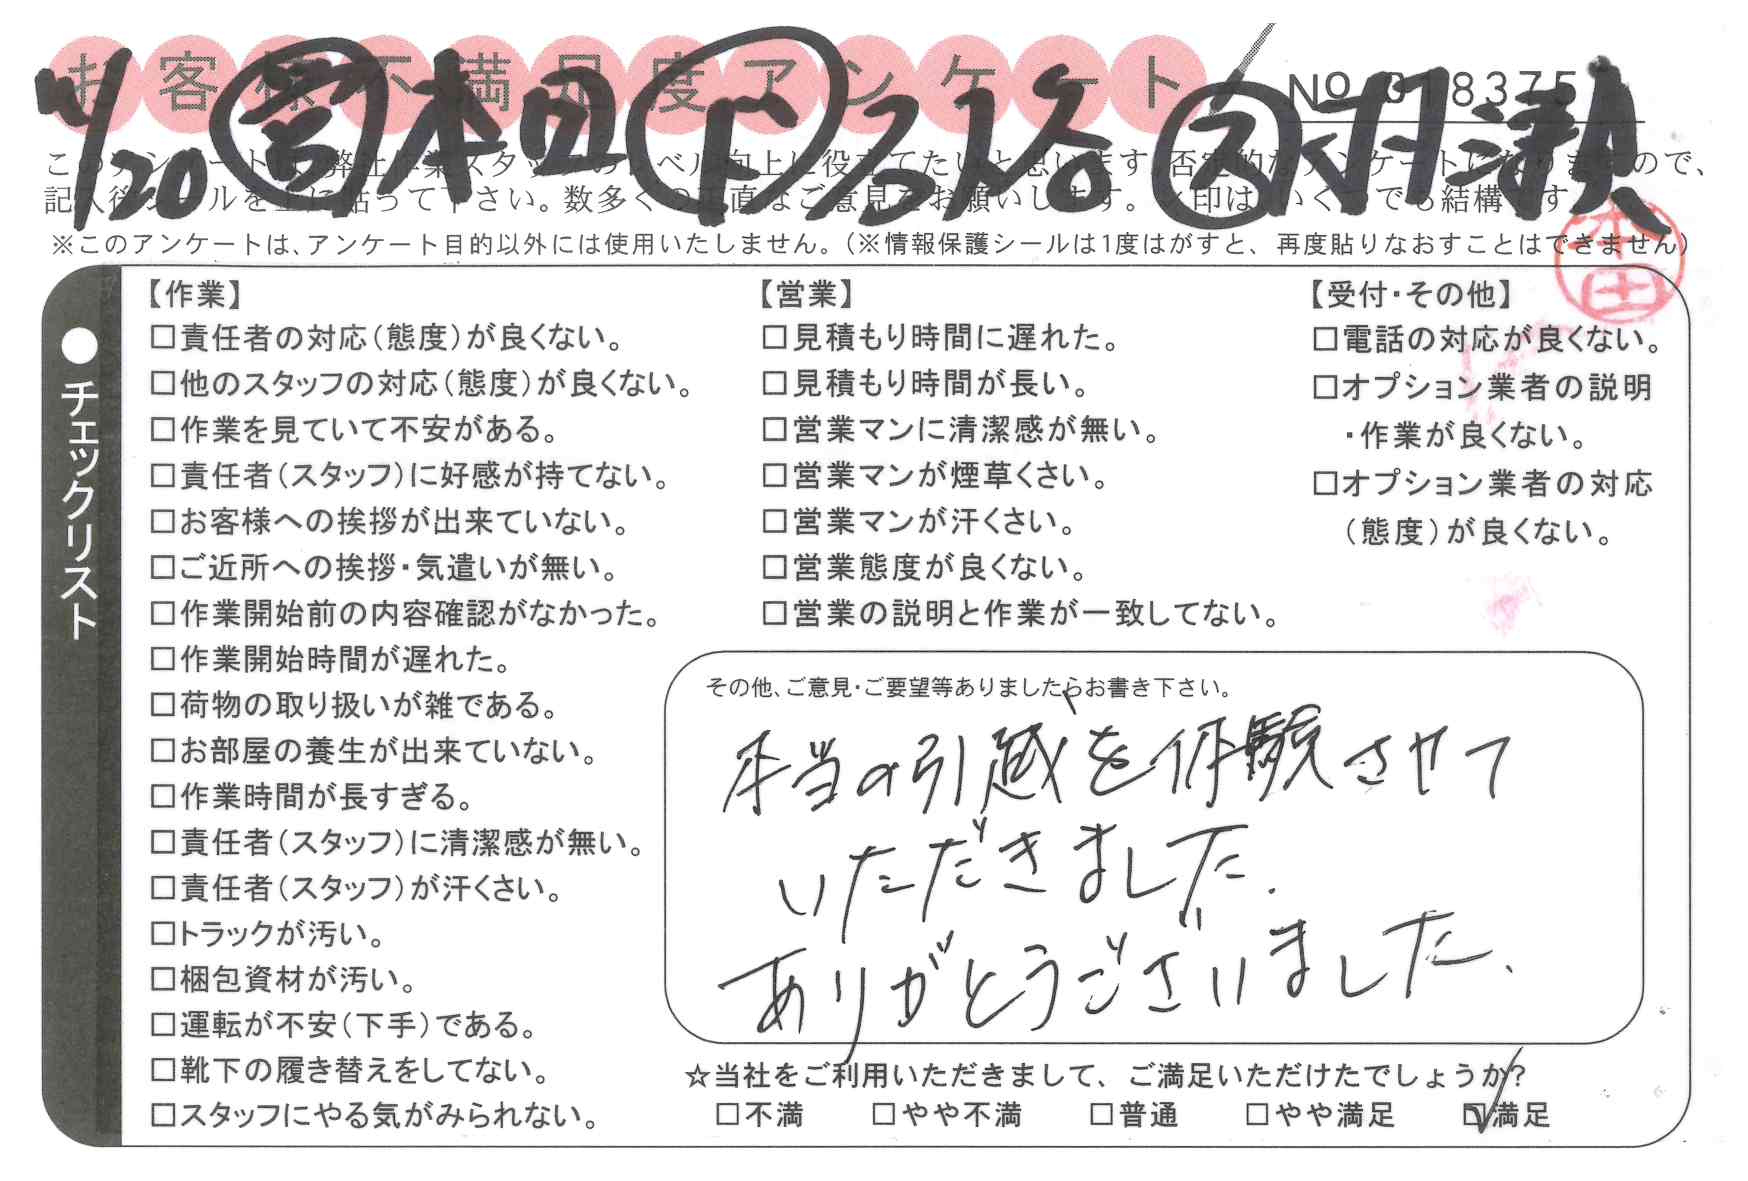 お客様不満足度アンケート
No 018375
4/20 営 本田 ド 引谷 ス 村瀬
このアンケートは、弊社作業スタッフのレベル向上に役立てたいと思います。否定的なアンケートになりますので、
記入後シールを上に貼って下さい。数多くの正直なご意見をお願いします。レ印は、いくつでも結構です。
※このアンケートは、アンケート目的以外には使用いたしません。(※情報保護シールは1度はがすと、再度貼りなおすことはできません)
本田
●チェックリスト
【作業】
□責任者の対応(態度)が良くない。
□他のスタッフの対応(態度)が良くない。
□作業を見ていて不安がある。
□責任者(スタッフ)に好感が持てない。
□お客様への挨拶が出来ていない。
□ご近所への挨拶・気遣いが無い。
□作業開始前の内容確認がなかった。
□作業開始時間が遅れた。
□荷物の取り扱いが雑である。
□お部屋の養生が出来ていない。
□作業時間が長すぎる。
□責任者(スタッフ)に清潔感が無い。
□責任者(スタッフ)が汗くさい。
□トラックが汚い。
□梱包資材が汚い。
□運転が不安(下手)である。
□靴下の履き替えをしてない。
□スタッフにやる気がみられない。
【営業】
□見積もり時間に遅れた。
□見積もり時間が長い。
□営業マンに清潔感が無い。
□営業マンが煙草くさい。
□営業マンが汗くさい。
□営業態度が良くない。
□営業の説明と作業が一致してない。
【受付・その他】
□電話の対応が良くない。
□オプション業者の説明
・作業が良くない。
□オプション業者の対応
(態度)が良くない。
その他、ご意見・ご要望等ありましたらお書き下さい。
本当の引越を体験させて
いただきました.
ありがとうございました.
☆当社をご利用いただきまして、ご満足いただけたでしょうか?
□不満 □やや不満 □普通 □やや満足 ☑満足